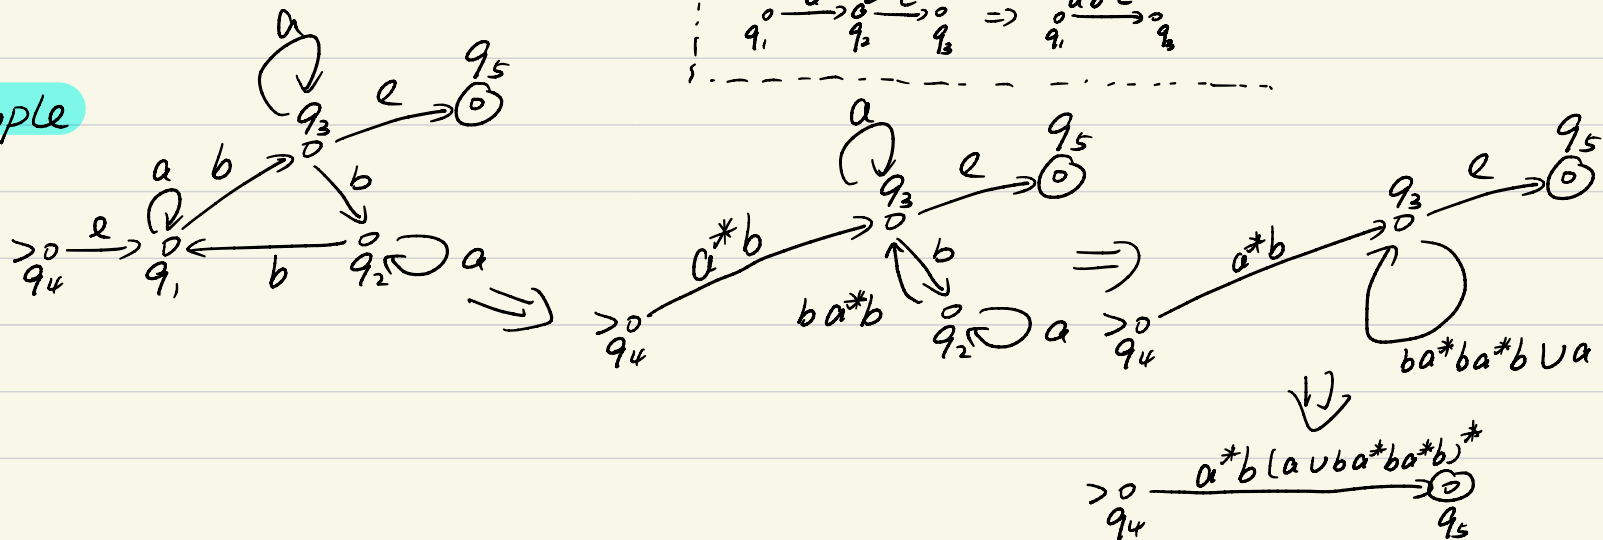 a b* c
q1 q2 q3 => q1 q3
ple
a
q3
e
q5
a
b
b
e
q4
q1
b
q2
a
=>
a
q3
e
q5
a*b
b
ba*b
q4
q2
a
=>
q3
e
q5
a*b
q4
ba*ba*b ∪ a
a*b(a∪ba*ba*b)*
q4
q5